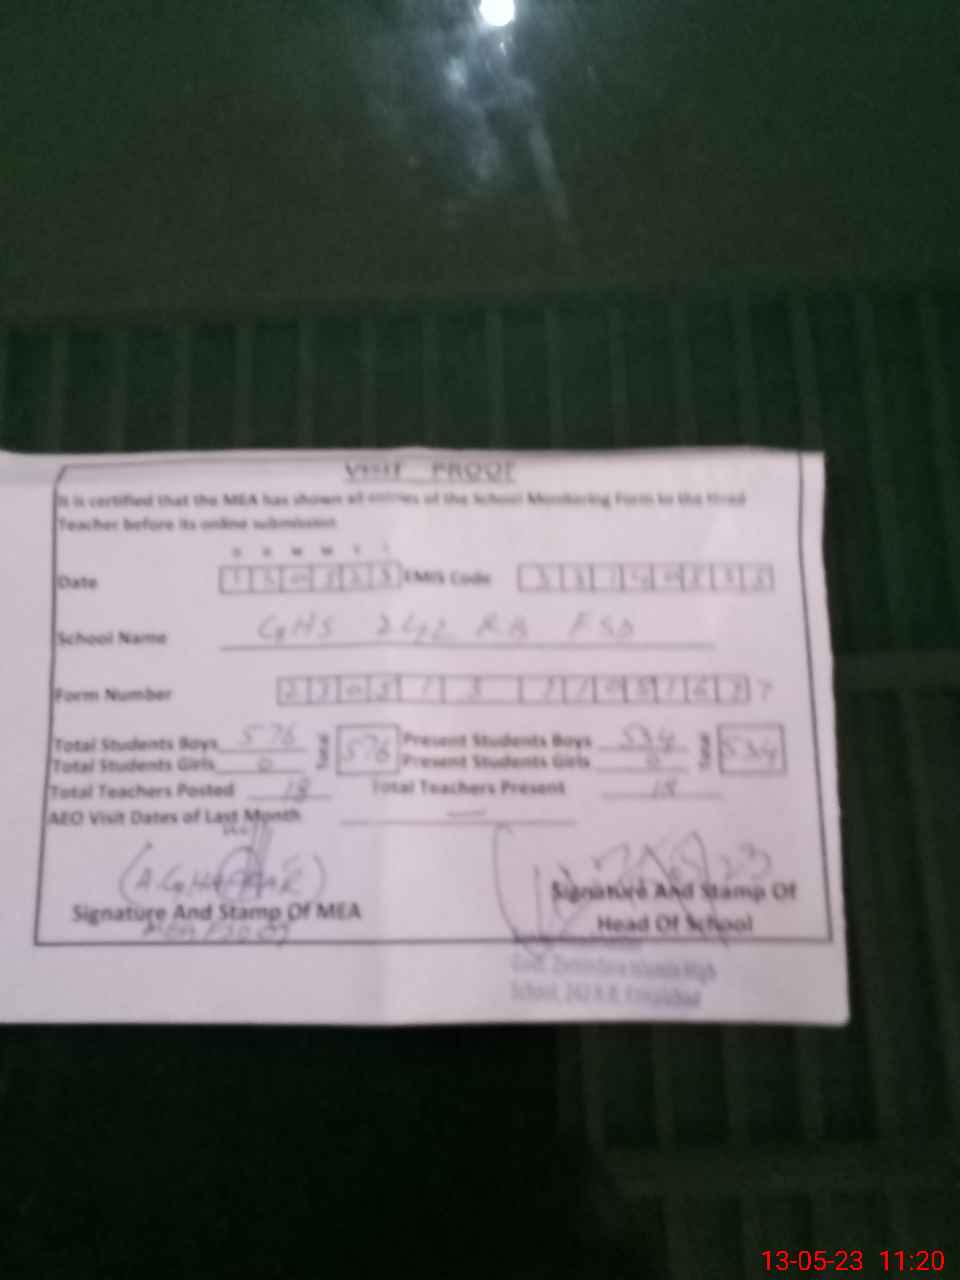 VISIT PROOF
It is certified that the MEA has shown all entries of the School Monitoring Form to the
Teacher before its online submission
D D M M Y Y
Date 130523 EMIS Code
School Name GHS 242 RB FSD
Form Number
Total Students Boys 576 Total 576 Present Students Boys 534 Total 534
Total Students Girls 0 Present Students Girls 0
Total Teachers Posted 18 Total Teachers Present 18
AEO Visit Dates of Last Month —
(A.GHAFFAR)
Signature And Stamp Of MEA
Signature And Stamp Of
Head Of School
MEA FSD
High
School, 242 R.B. Faisalabad
13-05-23 11:20